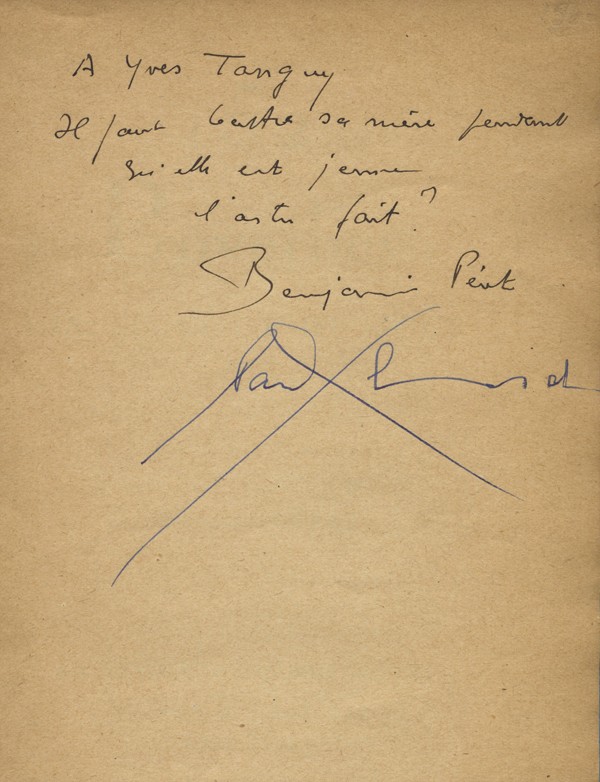 A Yves Tanguy
Il faut battre sa mère pendant
qu'elle est jeune
l'as tu fait ?
Benjamin Péret
Paul Eluard